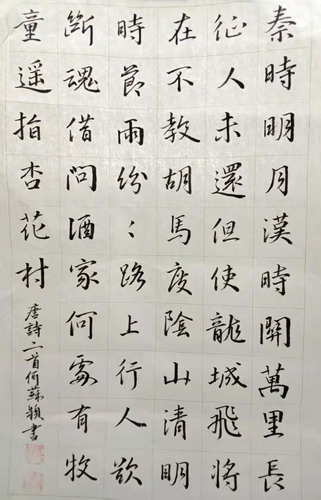 秦時明月漢時關萬里長
征人未還但使龍城飛將
在不教胡馬度陰山清明
時節雨紛〻路上行人欲
斷魂借問酒家何處有牧
童遥指杏花村
唐詩二首何蘇穎書